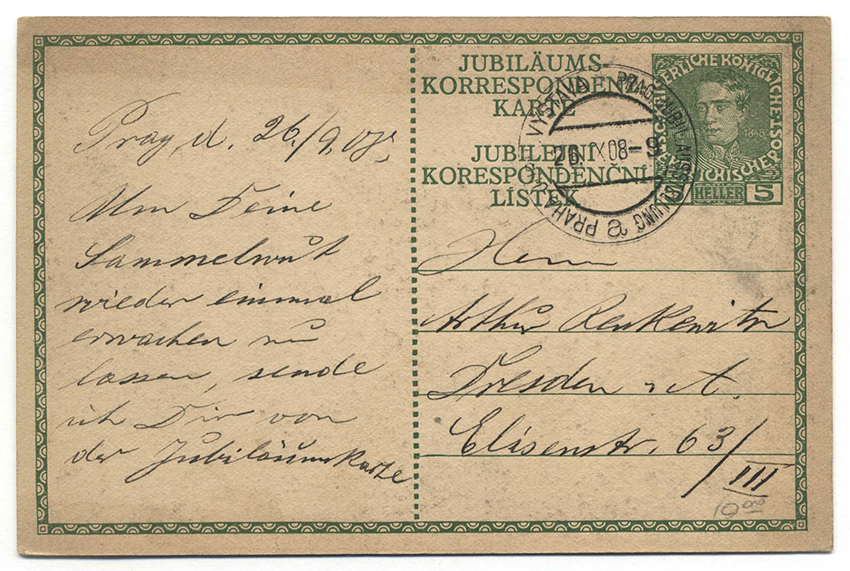 Prag, d. 26/9.08,
Um Deine
Sammelwut
wieder einmal
erwachen zu
lassen, sende
ich Dir von
der Jubiläumskarte
JUBILÄUMS-
KORRESPONDENZ-
KARTE
JUBILEJNÍ
KORESPONDENČNÍ
LÍSTEK
VÝSTAVA PRAG JUBIL. AUSSTELLUNG
26. IX 08-9
PRAHA
1848
HELLER 5
Herrn
Arthur
Dresden A.
Elisenstr. 63/
III
19